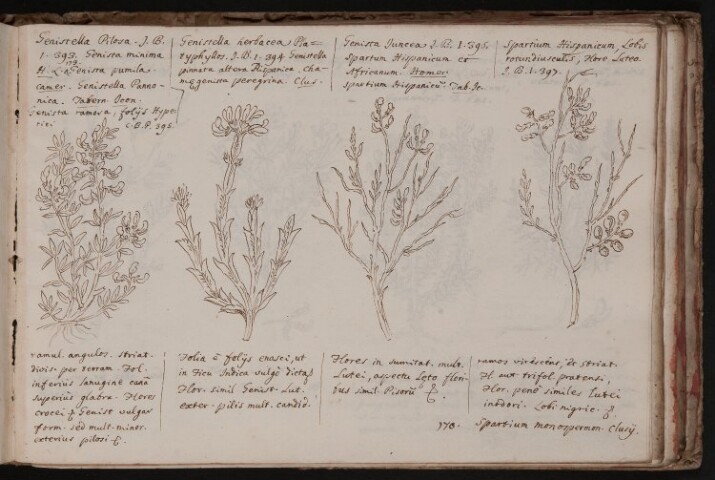 Genistella Pilosa. J. B.
1. 393. Genista minima
Genista pumila.
Genistella Panno-
nica. Tabern. Icon.
Genista ramosa, folijs Hyperi-
C. B. P. 395.
Genistella herbacea Pla=
typhyllos. J. B. 1. 394 Genistella
pinnata altera Hispanica, cha-
mægenista peregrina. Clus.
Genista Juncea J. B. 1. 395.
Spartum Hispanicum et
Africanum. Homer.
Spartium Hispanicū. Tab. Ic.
Spartium Hispanicum, Lobis
rotundiusculis, flore Luteo
J. B. 1. 397.
ramul. angulos. striat.
divis. per terram. Fol.
inferius lanugine canā
superius glabra. Flores
crocei Genist vulgar
form. sed mult. minor.
exterius pilosi
Folia ē folijs enasci, ut
in Ficu Indica vulgò dictas
Flor. simil Genist. Lut.
exter. pilis mult. candid.
Flores in sumitat. mult.
Lutei, aspectu Læto flori-
bus simil. Pisorū
170.
ramos virescent, et striat.
H aut trifol. pratensi,
Flor. penè similes Lutei
inodori. Lobi nigric.
Spartium monospermon. Clusij.